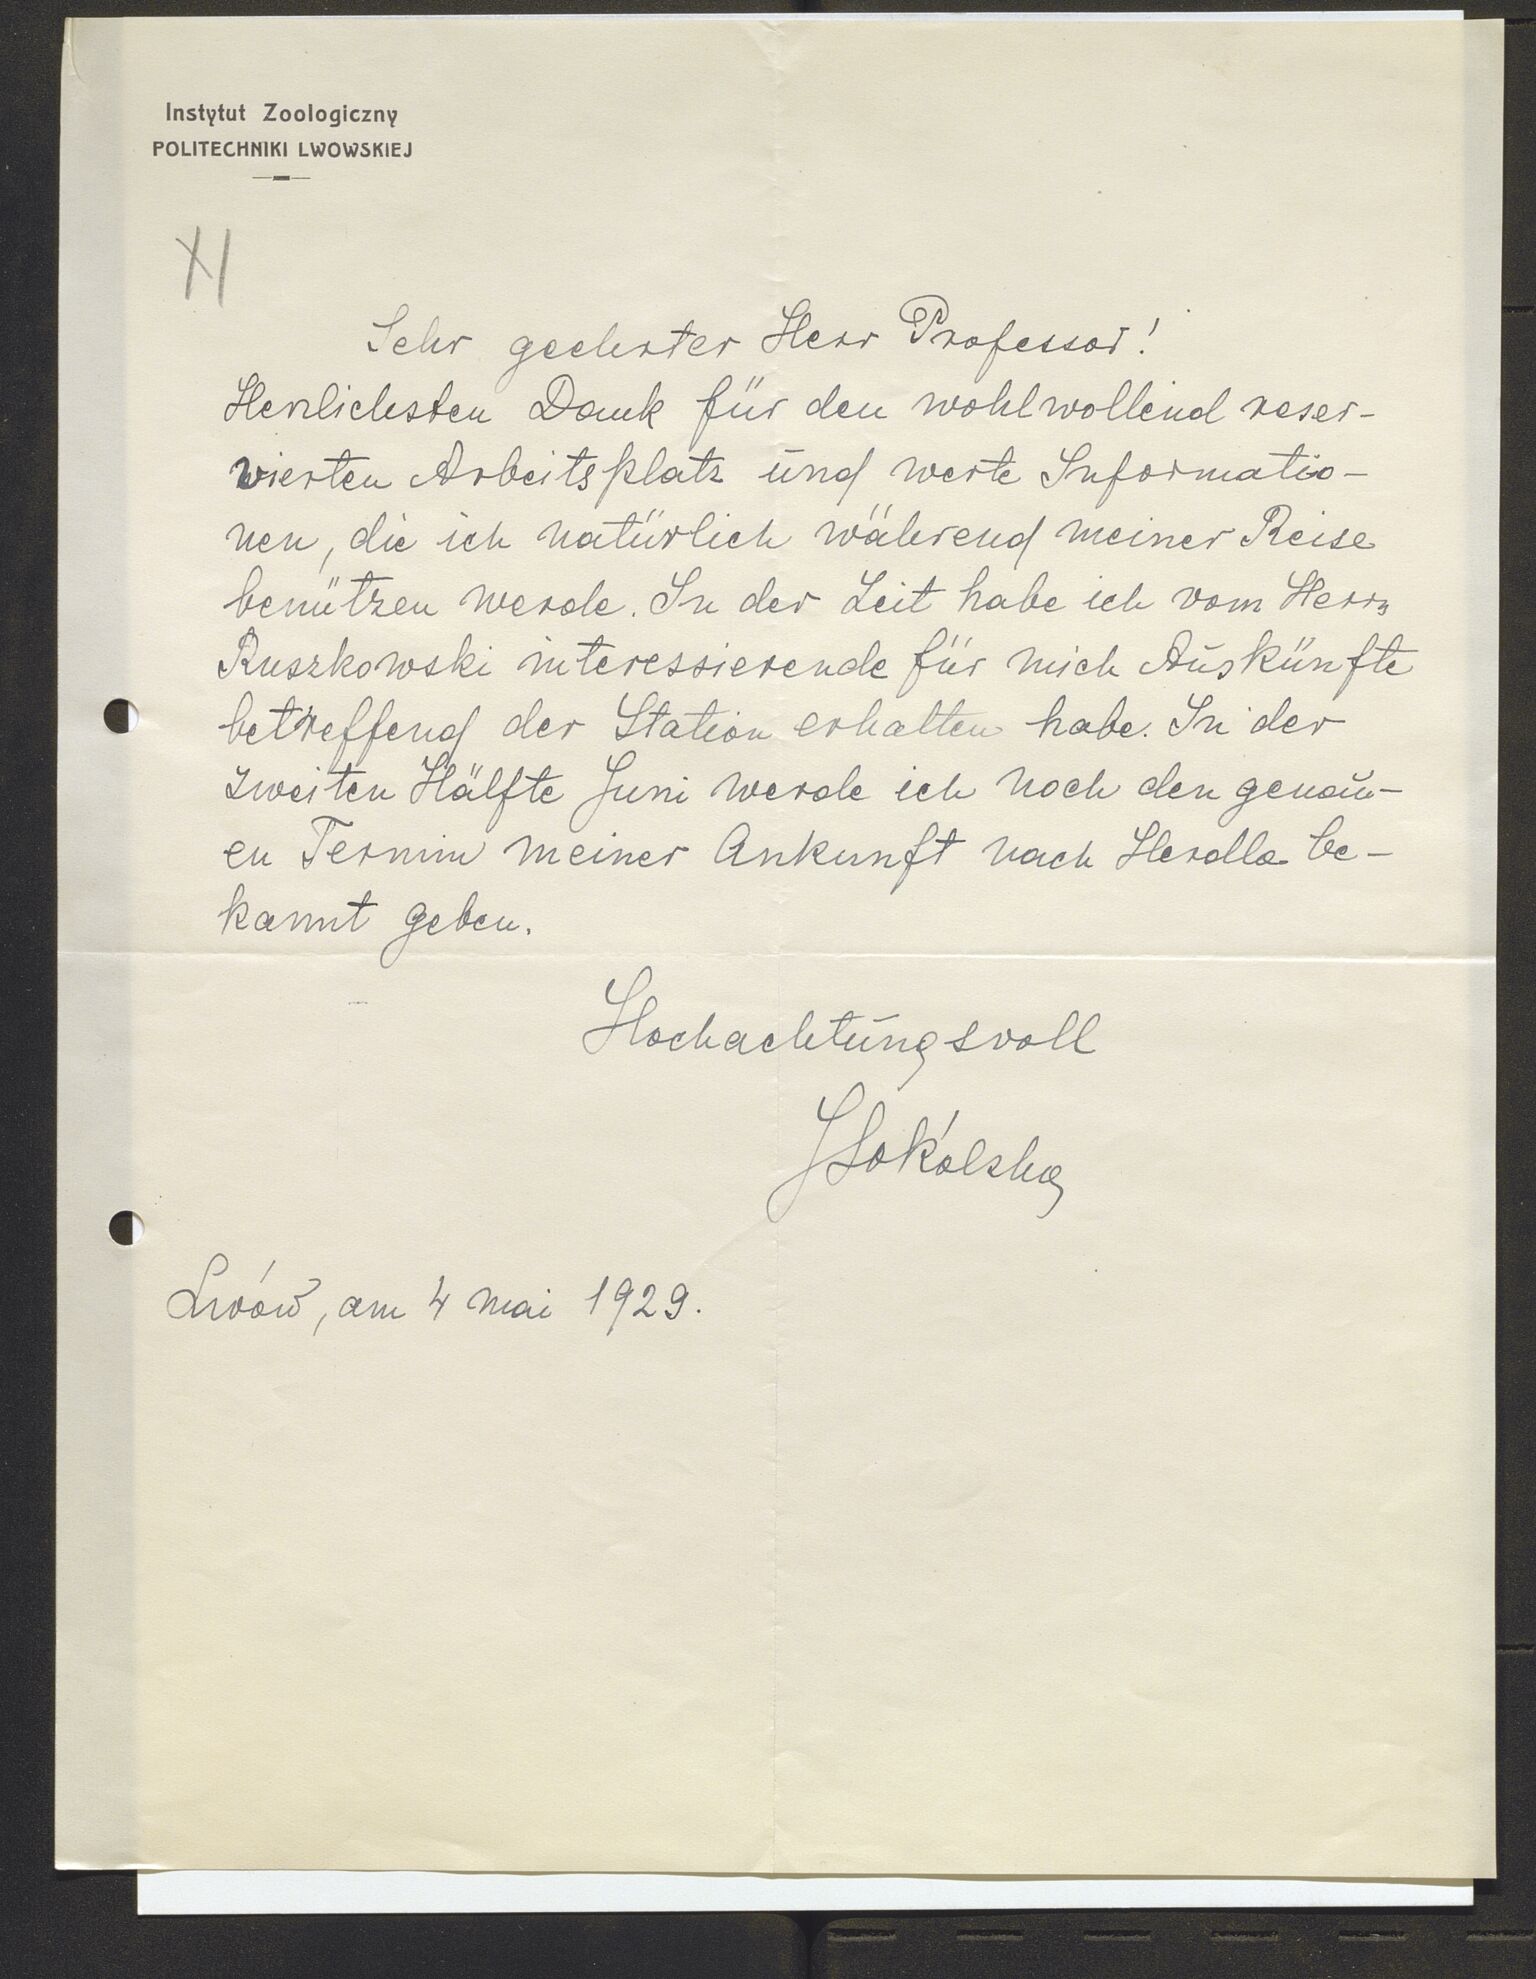 Instytut Zoologiczny
POLITECHNIKI LWOWSKIEJ
Sehr geehrter Herr Professor!
Herzlichsten Dank für den wohlwollend reser-
vierten Arbeitsplatz und werte Informatio-
nen, die ich natürlich während meiner Reise
benützen werde. In der Zeit habe ich vom Herrn
Ruszkowski interessierende für mich Auskünfte
betreffend der Station erhalten habe. In der
zweiten Hälfte Juni werde ich noch den genau-
en Termin meiner Ankunft nach Herdla be-
kannt geben.
Hochachtungsvoll
JSokólska
Lwów, am 4 mai 1929.